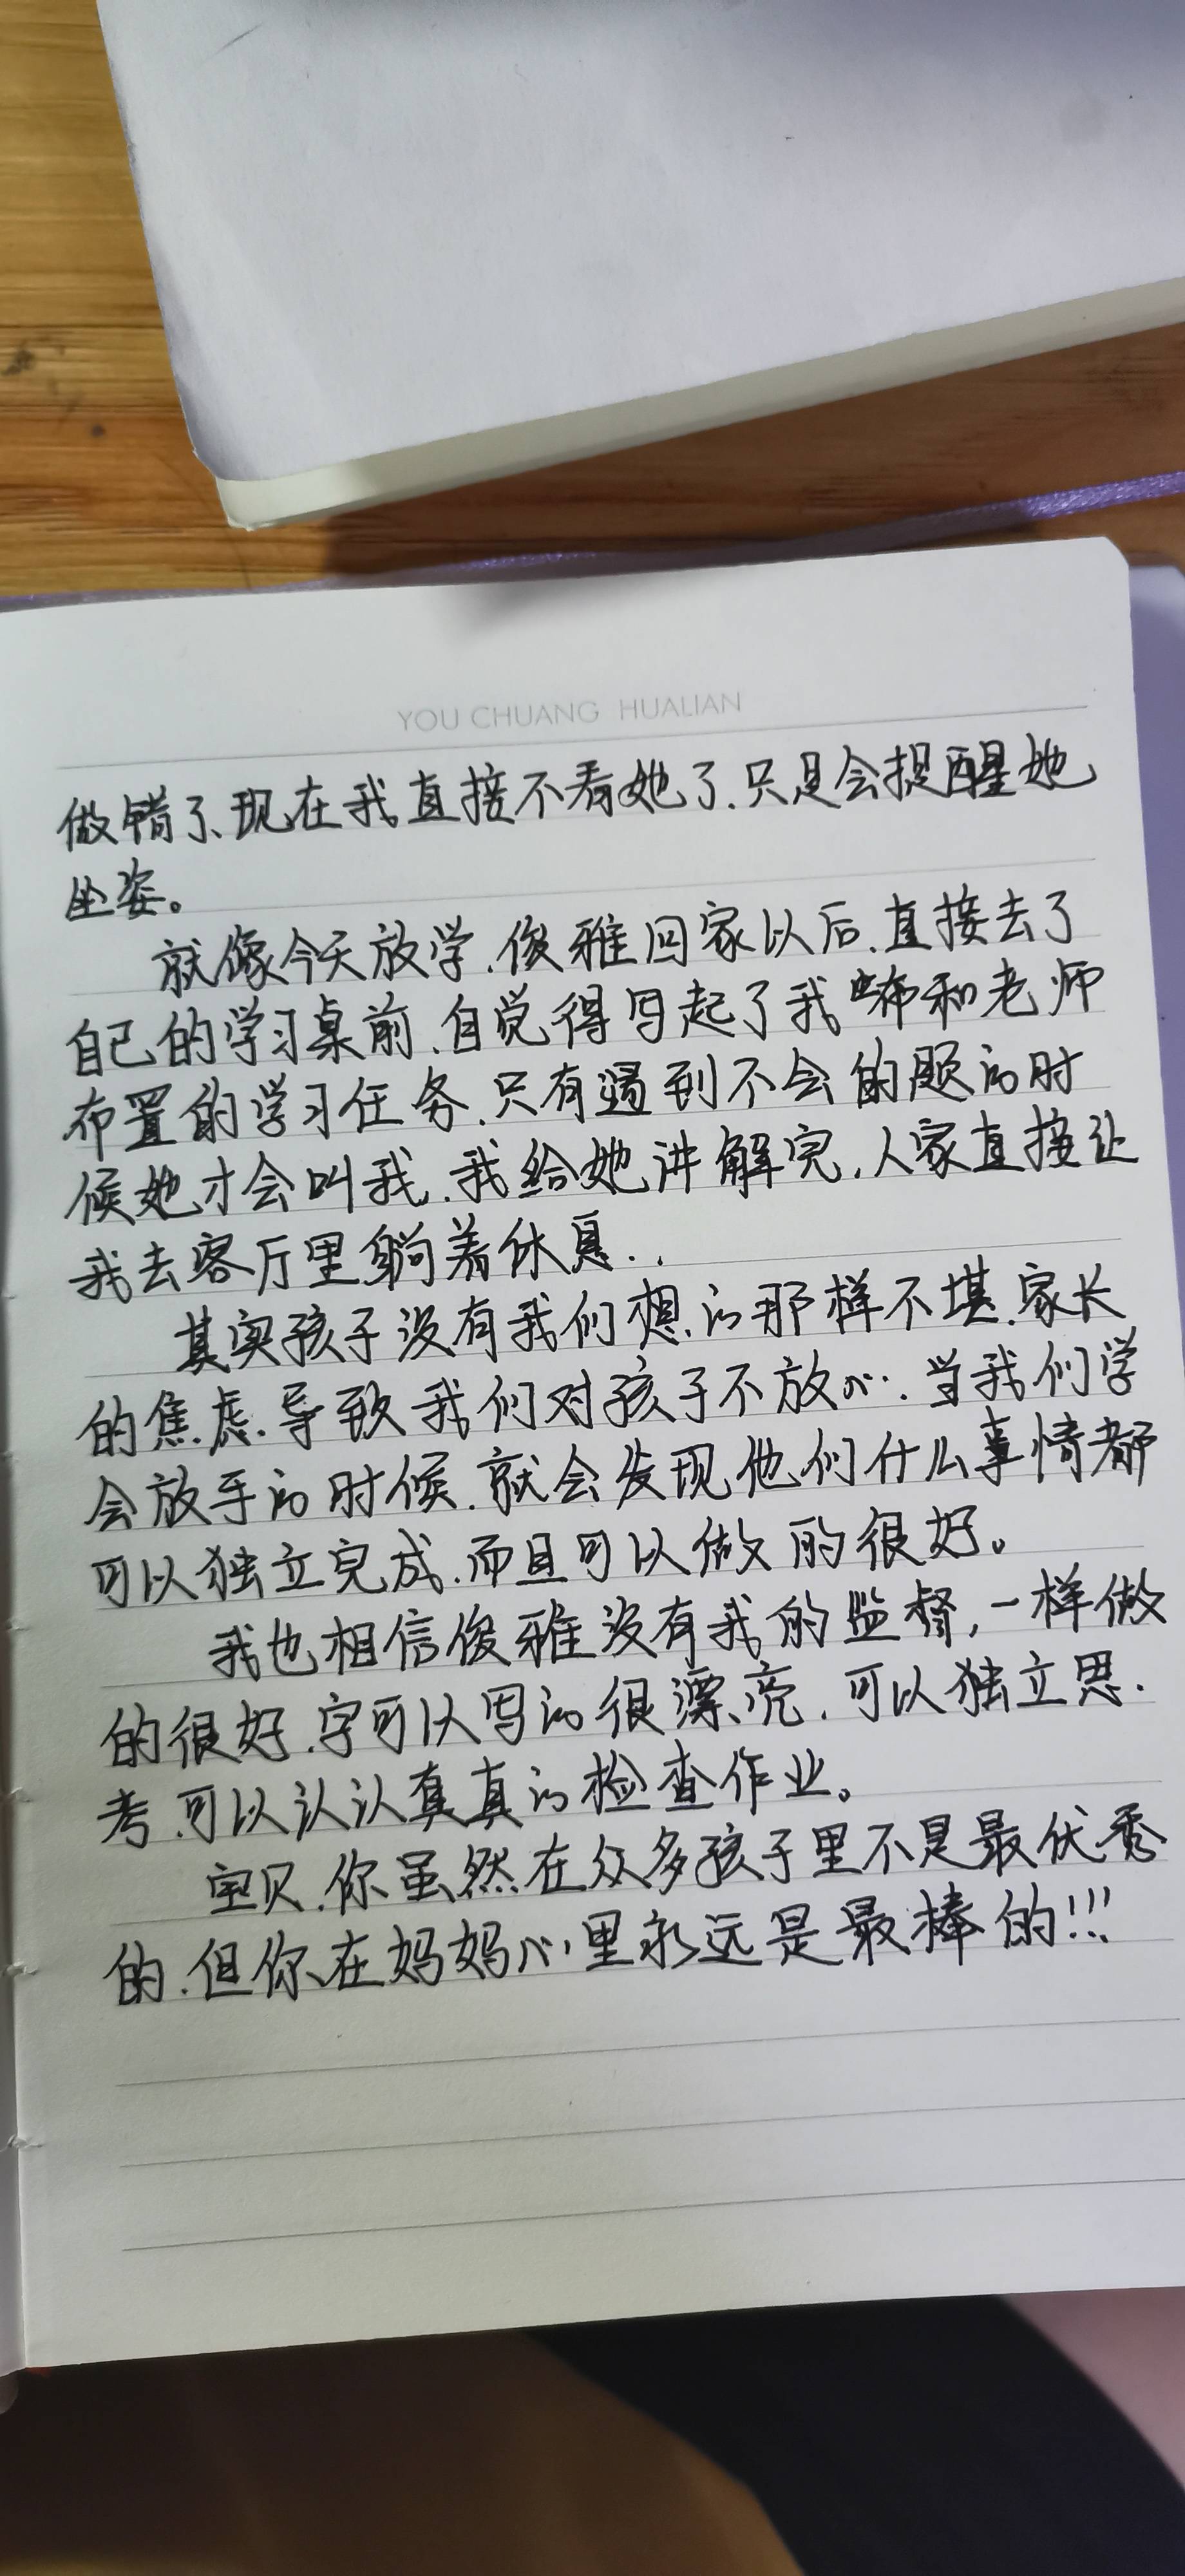 YOU CHUANG HUALIAN
做错了、现在我直接不看她了.只是会提醒她
坐姿。
就像今天放学.俊雅回家以后.直接去了
自己的学习桌前.自觉得写起了我和老师
布置的学习任务.只有遇到不会的题的时
候她才会叫我.我给她讲解完.人家直接让
我去客厅里躺着休息..
其实孩子没有我们想的那样不堪.家长
的焦虑.导致我们对孩子不放心.当我们学
会放手的时候.就会发现他们什么事情都
可以独立完成.而且可以做的很好。
我也相信俊雅没有我的监督,一样做
的很好.字可以写的很漂亮.可以独立思.
考.可以认认真真的检查作业。
宝贝.你虽然在众多孩子里不是最优秀
的.但你在妈妈心里永远是最棒的!!!